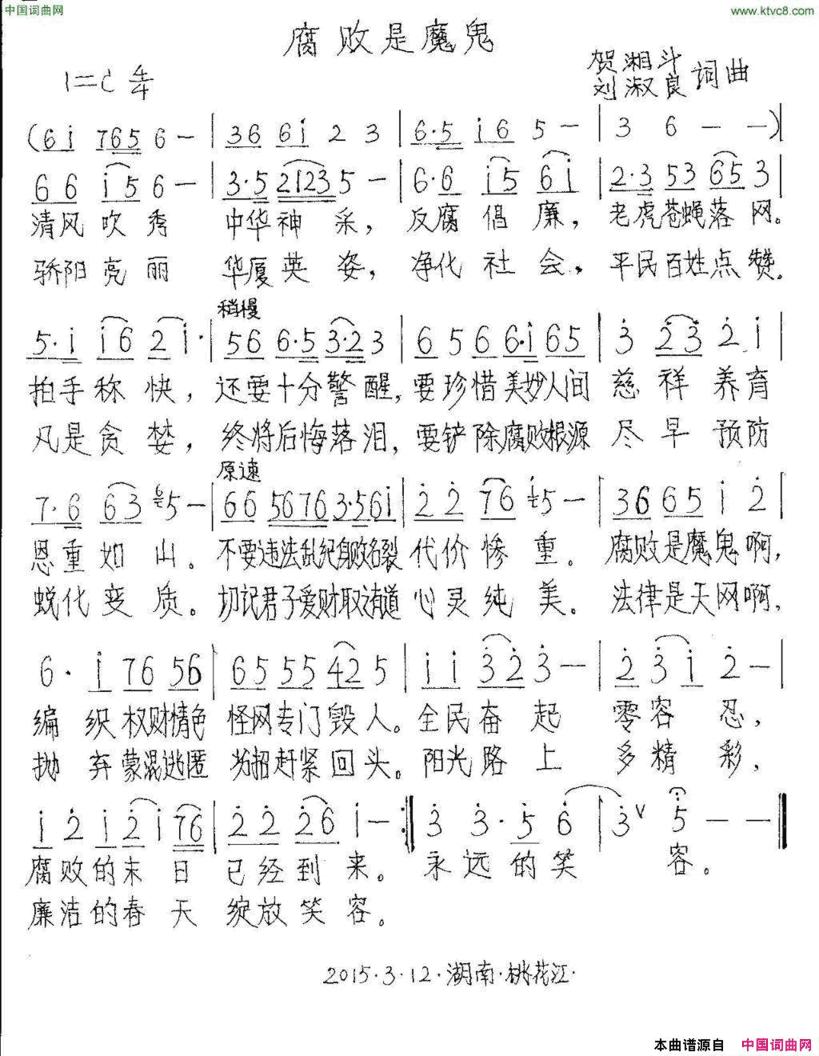 中国词曲网
www.ktvc8.com
腐败是魔鬼
1=C 4/4
贺湘斗
刘淑良 词曲
(6i 765 6 - | 36 6i 2 3 | 6·5 i6 5 - | 3 6 - -)|
66 i5 6 - | 3·5 2123 5 - | 6·6 i5 6i | 2·3 53 653 |
清风吹秀 中华神采，反腐倡廉，老虎苍蝇落网。
骄阳亮丽 华厦英姿，净化社会，平民百姓点赞。
稍慢
5·i i6 2i· | 56 6·5 3·2 3 | 6 5 6 6·i 65 | 3 23 2 i |
拍手称快，还要十分警醒，要珍惜美妙人间 慈祥养育
凡是贪婪，终将后悔落泪，要铲除腐败根源 尽早预防
原速
7·6 63 5 - | 66 5676 3·56i | 2 2 76 5 - | 36 65 i 2 |
恩重如山。不要违法乱纪身败名裂 代价惨重。腐败是魔鬼啊，
蜕化变质。切记君子爱财取决有道 心灵纯美。法律是天网啊，
6· i 76 56 | 65 55 42 5 | i i 3 2 3 - | 2 3 i 2 - |
编织权财情色 怪网专门毁人。全民奋起 零容忍，
抛弃蒙混逃匿 招赶紧回头。阳光路上 多精彩，
i 2 i 2 i 76 | 2 2 26 i - :| 3 3· 5 6 | 3 ∨ 5 - - ‖
腐败的末日 已经到来。永远的笑 容。
廉洁的春天 绽放笑容。
2015·3·12·湖南·桃花江·
本曲谱源自 中国词曲网